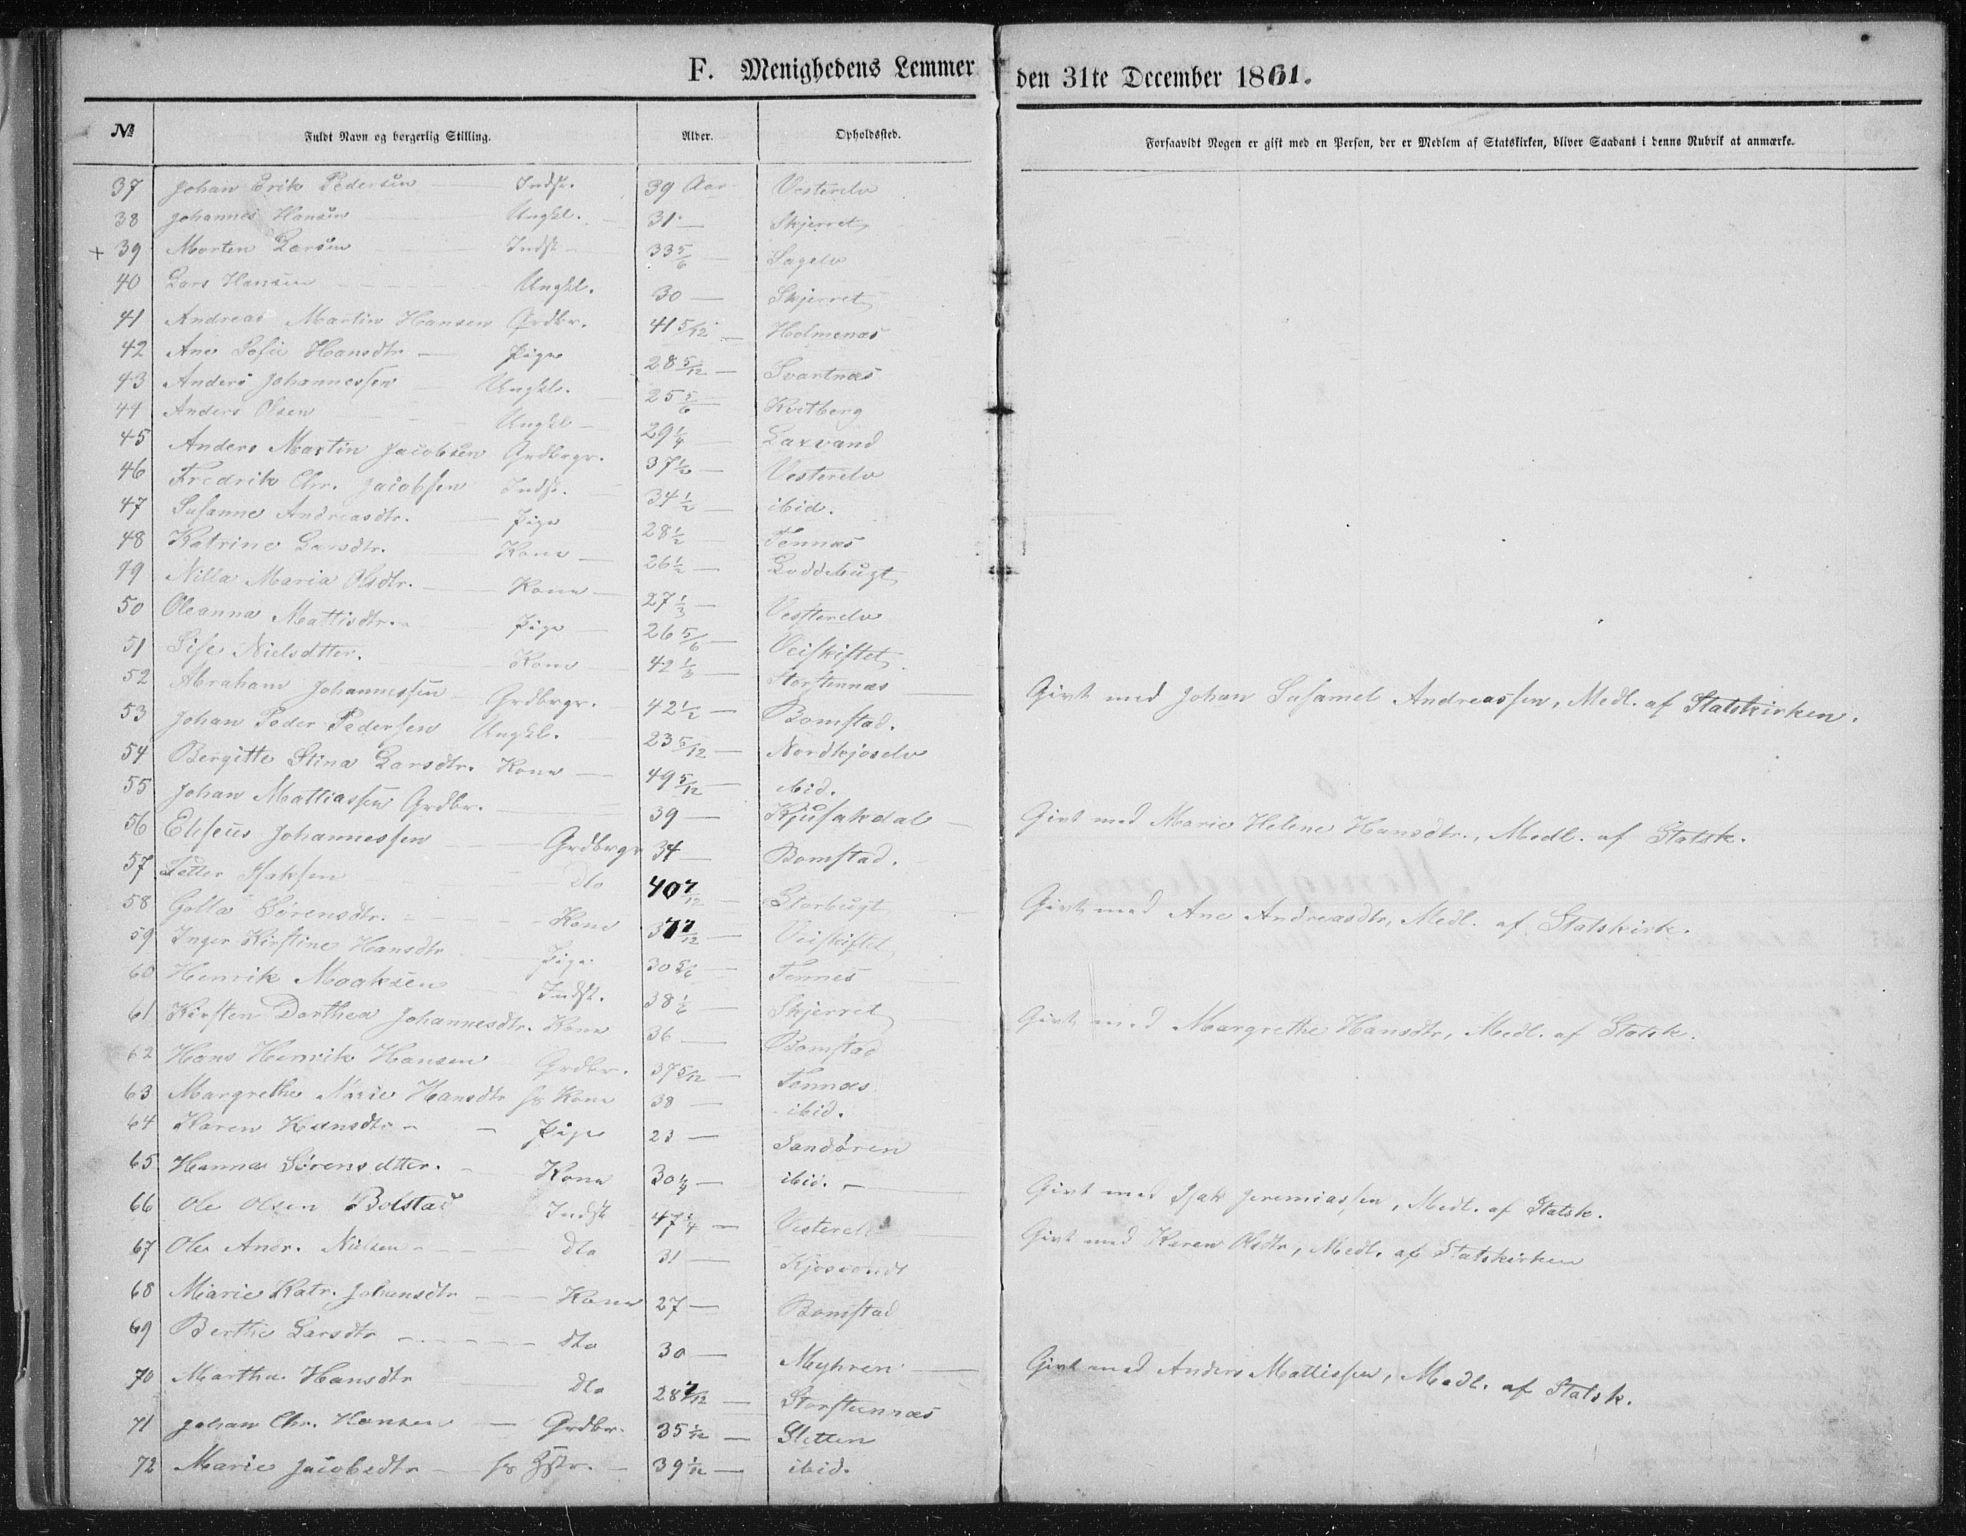 F. Menighedens Lemmer den 31te December 1861.
№ Fuldt Navn og borgerlig Stilling. Alder. Opholdssted. Forsaavidt Nogen er gift med en Person, der er Medlem af Statskirken, bliver Saadant i denne Rubrik at anmærke.
37 Johan Erik Pedersen — Indst. 39 Aar Vesterelv
38 Johannes Hansen Ungkl. 31 — Skjerret
+ 39 Morten Larsen Indst 33 5/6 — Sagelv
40 Lars Hansen Ungkl. 30 — Skjerret
41 Andreas Martin Hansen Grdbr. 41 5/12 — Holmenæs
42 Ane Sofie Hansdtr — Pige 28 5/12 — Svartnæs
43 Anders Johannessen — Ungkl. 25 5/6 Kvitberg
44 Anders Olsen Ungkl — 29 1/4 — Laxvand
45 Anders Martin Jacobsen Grdbrgr. 37 1/2 — Vesterelv
46 Fredrik Chr. Jacobsen Indst. 34 1/2 — ibid.
47 Susanne Andreasdtr. — Pige 28 1/2 — Tennæs
48 Katrine Larsdtr. Kone — 26 1/2 — Loddebugt
49 Nilla Maria Olsdtr. — Kone — 27 1/3 — Vesterelv
50 Oleanna Mattisdtr. — Pige — 26 5/6 — Veiskiftet
51 Sise Nielsdtter. Kone — 42 — Storstennæs — Givt med Johan Susamel Andreassen, Medl. af Statskirken.
52 Abraham Johannessen Grdbrgr. — 42 1/2 — Bomstad.
53 Johan Peder Pedersen Ungkl. 23 5/12 — Nordkjoselv
54 Bergitte Stina Larsdtr. Kone — 49 5/12 — ibid.
55 Johan Mattiassen Grdbr. 39 — Kjusakdal — Givt med Marie Helene Hansdtr., Medl. af Statsk.
56 Eliseus Johannessen Grdbrgr 34 — Bomstad.
57 Petter Isaksen dto 40 7/12 — Storbugt Givt med Ane Andreasdtr, Medl. af Statskirk.
58 Golla Sørensdtr. — Kone 37 7/12 — Veiskiftet
59 Inger Kirstine Hansdtr Pige 30 5/6 — Tennes
60 Henrik Isaaksen Indst. 38 1/6 — Skjerret Givt med Margrethe Hansdtr, Medl. af Statsk.
61 Kirsten Dorthea Johannesdtr. Kone 36 — Bomstad
62 Hans Henrik Hansen Grdbr. 37 5/12 — Tennæs
63 Margrethe Marie Hansdtr hs Kone 38 — ibid.
64 Karen Hansdtr — Pige 23 — Sandøren
65 Hanna Sørensdtter. — Kone 30 1/4 — ibid. — Givt med Isak Jeremiassen, Medl. af Statsk.
66 Ole Olsen Bolstad Indst 47 1/4 — Vesterelv Givt med Karen Olsdtr, Medl. af Statskirken
67 Ole Andr. Nielsen — dto 31 — Kjosvandt
68 Marie Katr. Johansdtr — Kone 27 — Bomstad
69 Berthe Larsdtr — dto 30 — Myhren — Givt med Anders Mattissen, Medl. af Statsk.
70 Martha Hansdtr dto 28 7/12 — Storstennæs
71 Johan Chr. Hansen — Grdbr. 35 1/12 — Sletten
72 Marie Jacobsdtr — hs — 39 1/12 — ibid.